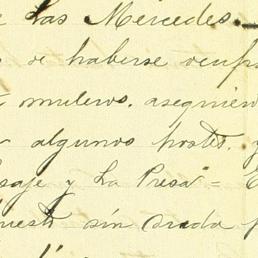 Las Mercedes.
de haberse ocupa
muleros. asegurien
algunos postes. y
saje y La Presa = E
uesto sin duda p